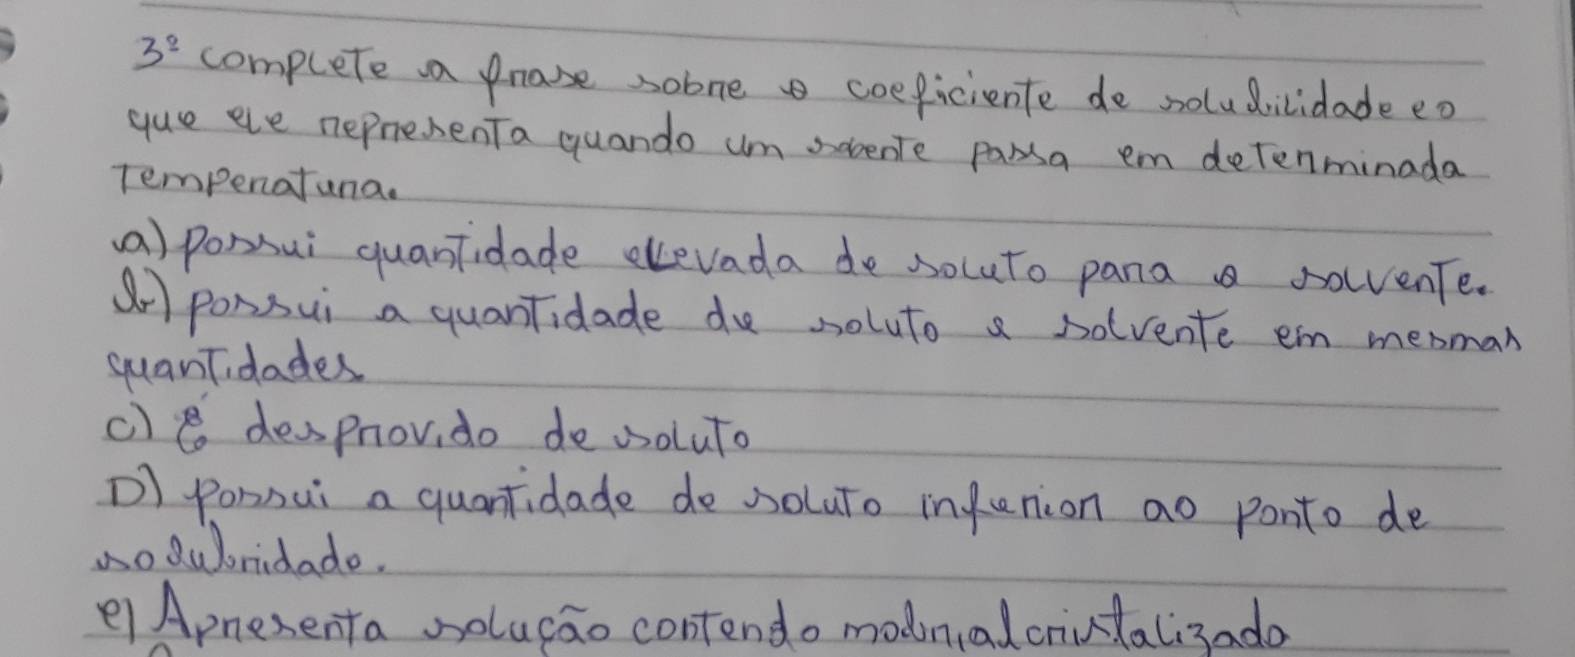 3º complete a frase sobre o coeficiente de solubilidade e o
que ele representa quando um solvente passa em determinada
Temperatura.
a) possui quantidade elevada de soluto para o solvente.
b) possui a quantidade de soluto e solvente em mesmas
quantidades
c) é desprovido de soluto
D) possui a quantidade de soluto inferior ao ponto de
e) Apresenta solução contendo cristalizado